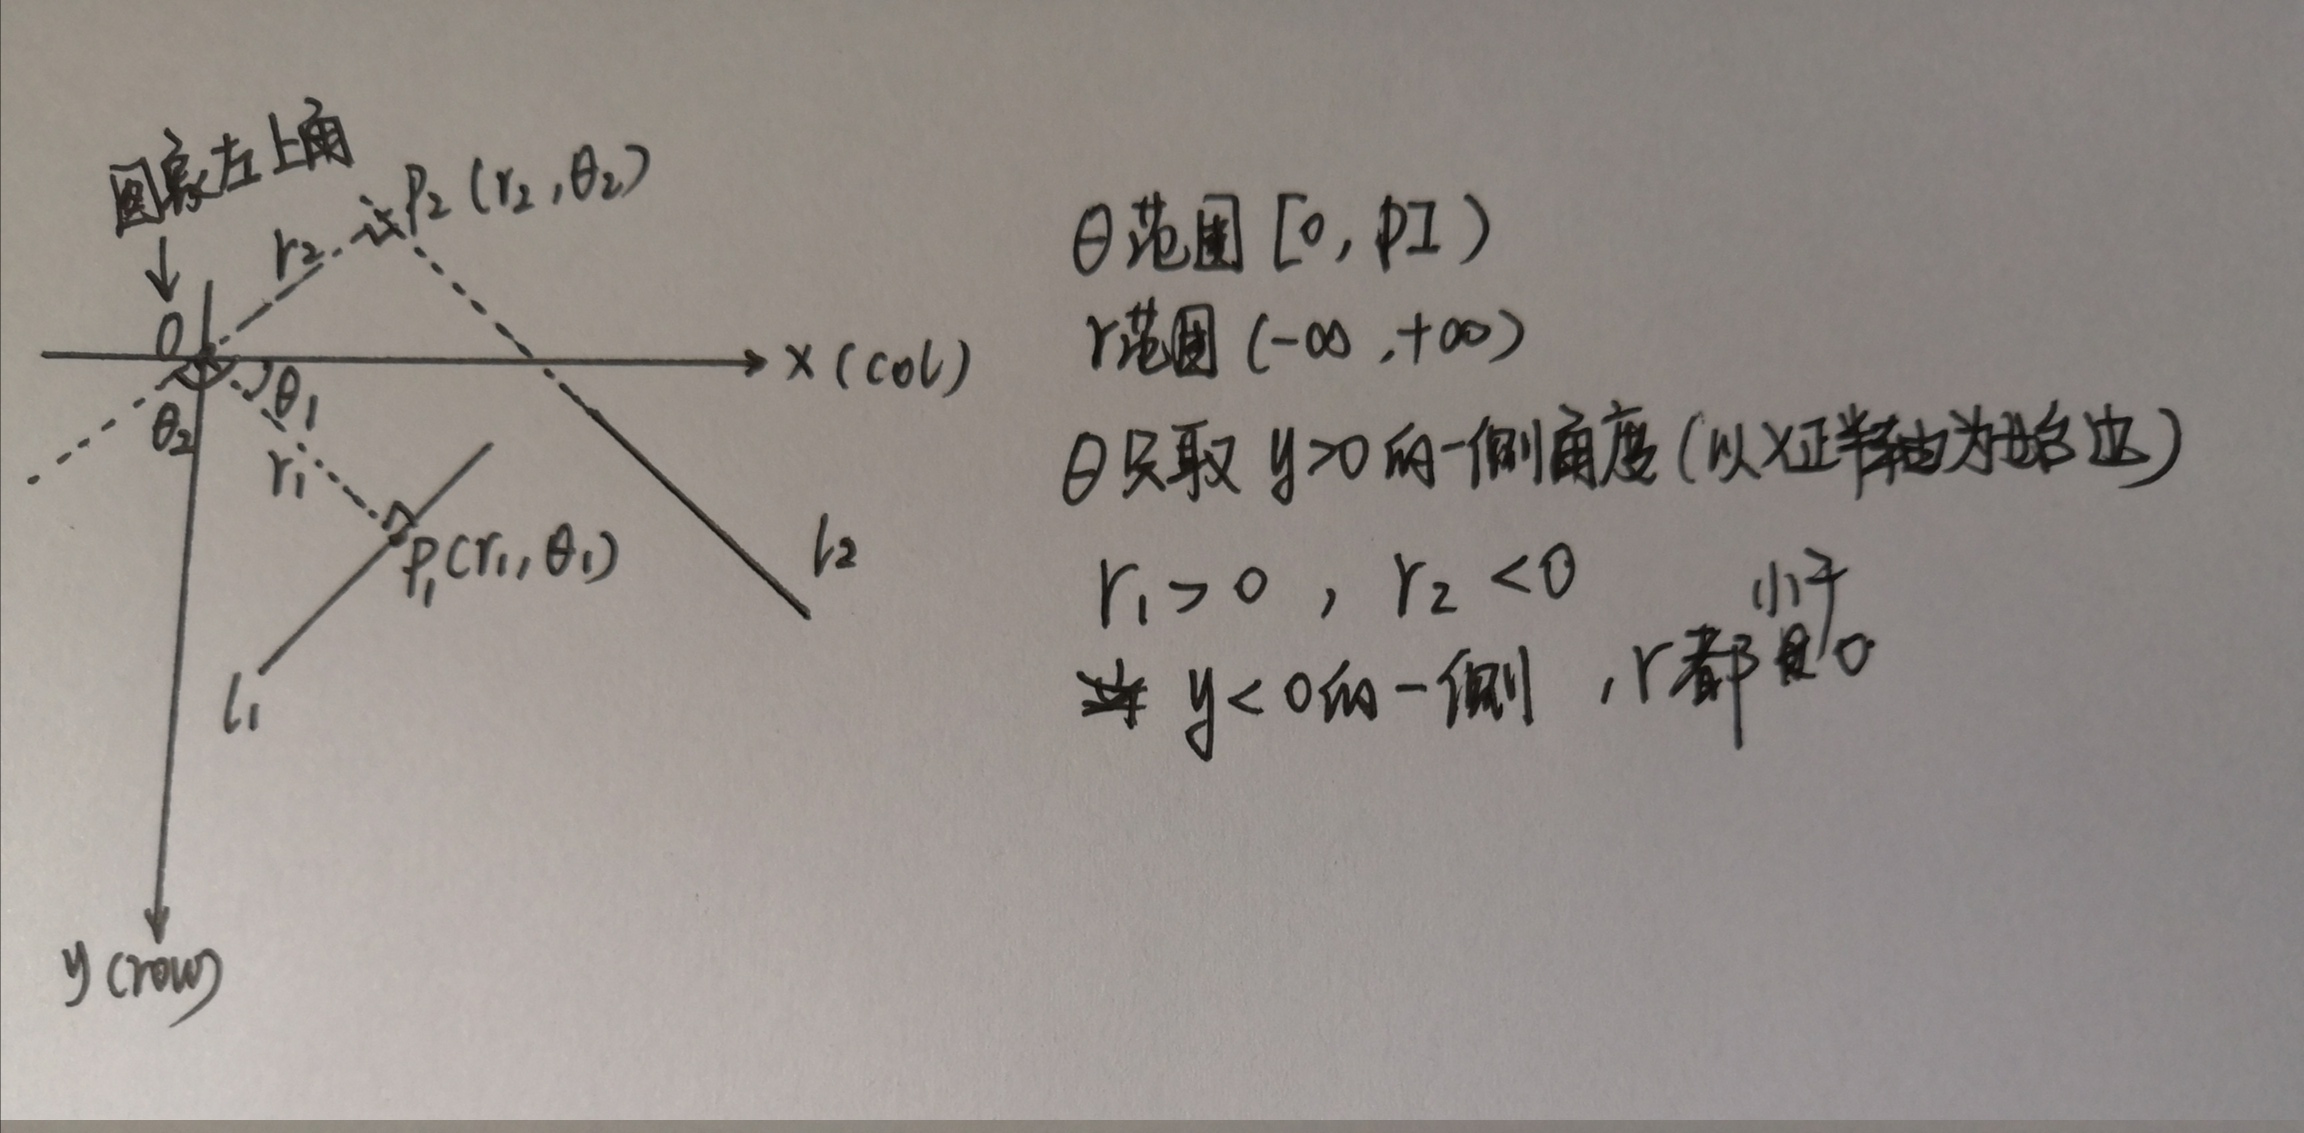 图象左上角
P₂(r₂,θ₂)
r₂
O
x(col)
θ₁
θ₂
r₁
P₁(r₁,θ₁)
l₂
l₁
y(row)
θ范围[0,PI)
r范围(-∞,+∞)
θ只取y>0的一侧角度(以x正半轴为始边)
r₁>0,r₂<0
y<0的一侧,r都小于0